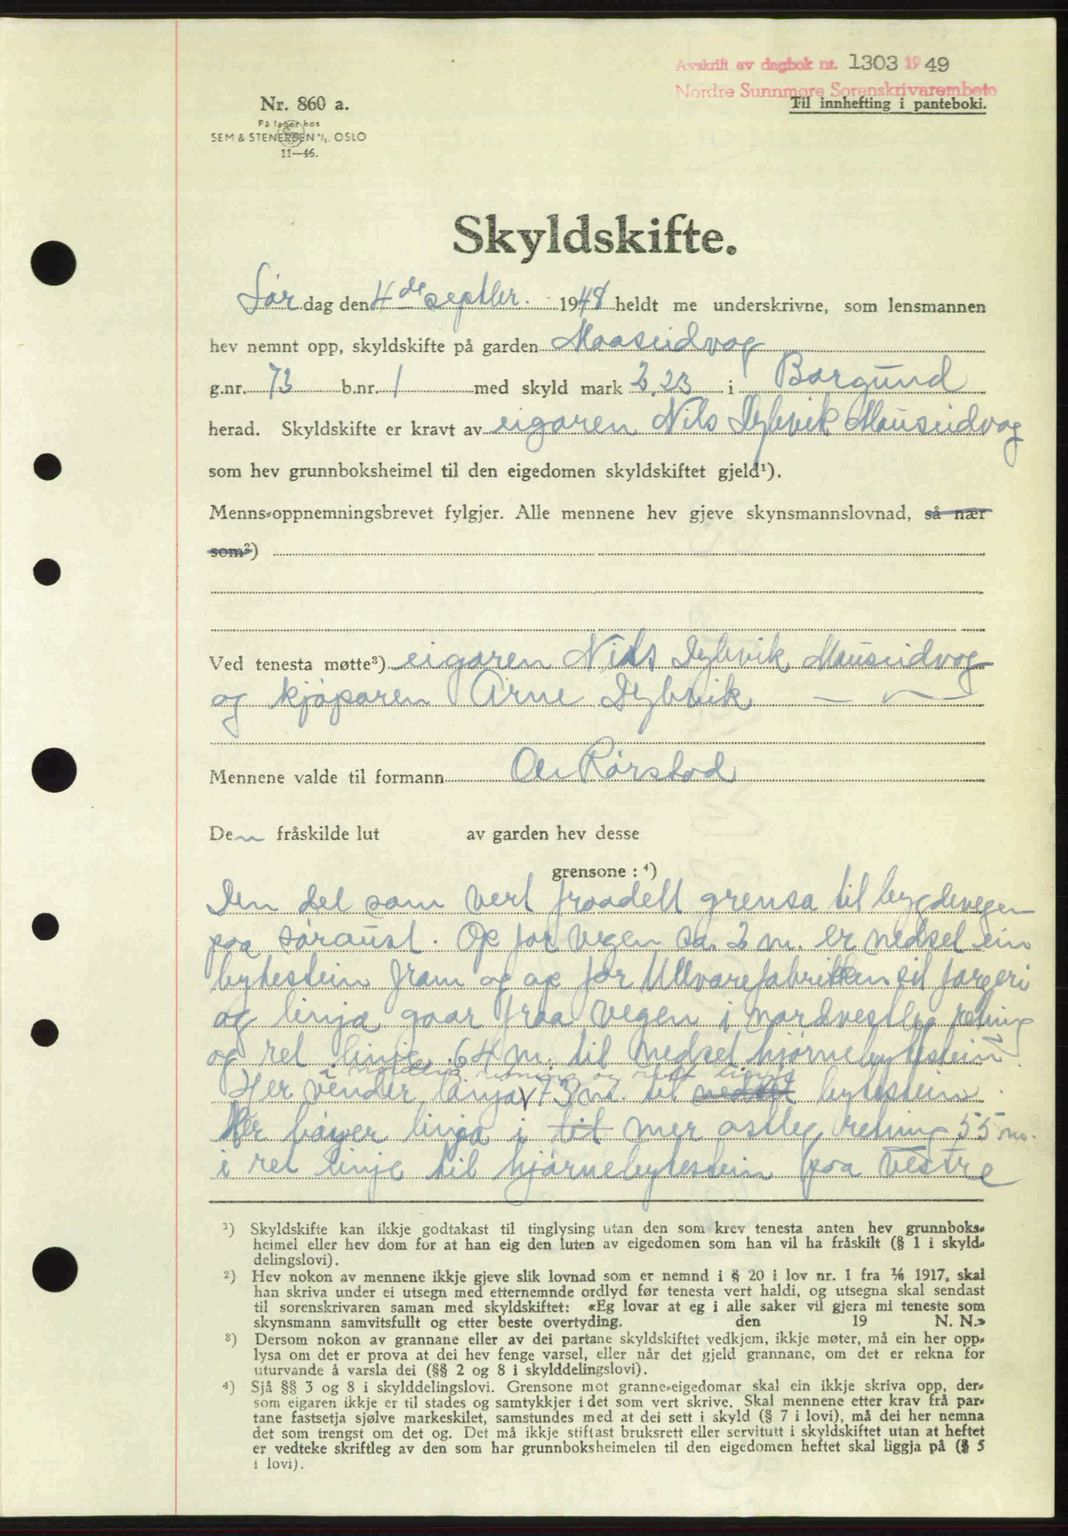 Avskrift av dagbok nr. 1303 1949
Nordre Sunnmøre Sorenskrivarembete
Til innhefting i panteboki.
Nr. 860 a.
På lager hos
SEM & STENERSEN A/S. OSLO
11—46.
Skyldskifte.
Lør dag den 4de septbr. 1948 heldt me underskrivne, som lensmannen
hev nemnt opp, skyldskifte på garden Mauseidvåg
g.nr. 73 b.nr. 1 med skyld mark 2,23 i Borgund
herad. Skyldskifte er kravt av eigaren Nils Dybvik Mauseidvåg
som hev grunnboksheimel til den eigedomen skyldskiftet gjeld¹).
Menns-oppnemningsbrevet fylgjer. Alle mennene hev gjeve skynsmannslovnad, så nær
som²)
Ved tenesta møtte³) eigaren Nils Dybvik Mauseidvog
og kjøparen Arne Dybvik — " —
Mennene valde til formann Ole Rørstad
Den fråskilde lut av garden hev desse
grensone : ⁴)
Den del som vert fraadelt grensa til bygdevegen
paa søraust. Op for vegen ca. 2 m. er nedset ein
bytestein fram og op for Ullvarefabrikken sit fargeri
og linja gaar fraa vegen i nordvestleg retning
og ret linje 64 m. til nedset hjørnebytestein
i nordleg retning og rett linje
Her vender linja 73 m. til nedsett bytestein
Her bøyer linja i tit mer ostleg retning 55 m.
i ret linje til hjørnebytestein paa vestre
¹) Skyldskifte kan ikkje godtakast til tinglysing utan den som krev tenesta anten hev grunnboks-
heimel eller hev dom for at han eig den luten av eigedomen som han vil ha fråskilt (§ 1 i skyld-
delingslovi).
²) Hev nokon av mennene ikkje gjeve slik lovnad som er nemnd i § 20 i lov nr. 1 fra 1/6 1917, skal
han skriva under ei utsegn med etternemnde ordlyd før tenesta vert haldi, og utsegna skal sendast
til sorenskrivaren saman med skyldskiftet: «Eg lovar at eg i alle saker vil gjera mi teneste som
skynsmann samvitsfullt og etter beste overtyding. den 19 N. N.»
³) Dersom nokon av grannane eller av dei partane skyldskiftet vedkjem, ikkje møter, må ein her opp-
lysa om det er prova at dei hev fenge varsel, eller når det gjeld grannane, om det er rekna for
uturvande å varsla dei (§§ 2 og 8 i skylddelingslovi).
⁴) Sjå §§ 3 og 8 i skylddelingslovi. Grensone mot granne-eigedomar skal ein ikkje skriva opp, der-
som eigaren ikkje er til stades og samtykkjer i det som vert skrive. Skal mennene etter krav frå par-
tane fastsetja sjølve markeskilet, samstundes med at dei sett i skyld (§ 7 i lovi), må dei her nemna
det som trengst om det og. Det må ikkje stiftast bruksrett eller servitutt i skyldskiftet utan at heftet
er vedteke skriftleg av den som har grunnboksheimelen til den eigedomen heftet skal liggja på (§ 5
i lovi).